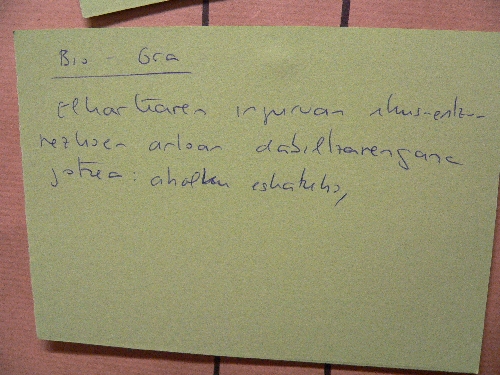 Bio - Gra
Elkartearen inguruan ikus-entzu-
nezkoen arloan dabiltzarengana
jotzea: aholku eskatuko,